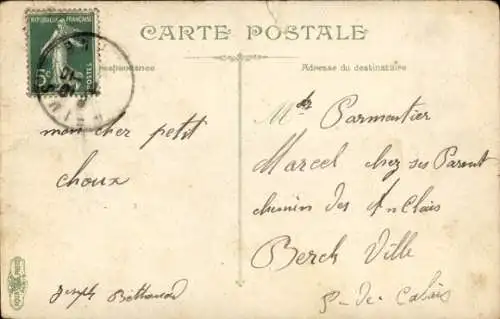 CARTE POSTALE
REPUBLIQUE FRANÇAISE
5c
POSTES
Correspondance
Adresse du destinataire
mon cher petit
choux
Joseph
Parmentier
Marcel chez ses Parent
chemin des
Berck Ville
P-de Calais